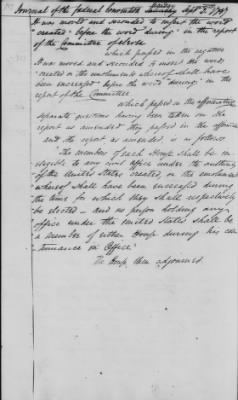 Journal of the federal Convention Monday Sept 3d 1787
It was moved and seconded to insert the word
"created" before the word "during" in the report
of the Committee of eleven
which passed in the negative
It was moved and seconded to insert the words
"created or the emoluments whereof shall have
been increased" before the word "during" in the
report of the Committee
which passed in the affirmative
separate questions having been taken on the
report as amended they passed in the affirmative
and the report as amended, is as follows
The members of each House shall be in-
eligible to any civil Office under the authority
of the United States created, or the emoluments
whereof shall have been increased during
the time for which they shall respectively
be elected — and no person holding any
office under the United States shall be
a member of either House during his con-
tinuance in Office
The House then adjourned